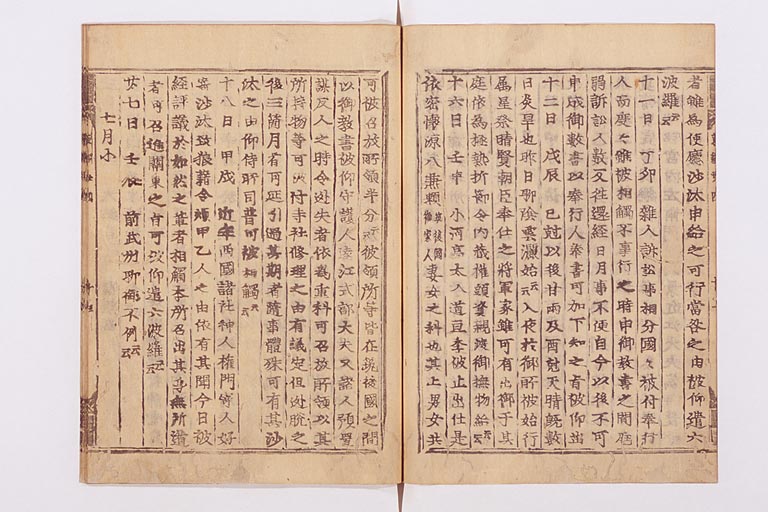 者雖為便應沙汰申給之可行當咎之由被仰遣六
波羅云云
十一日 丁卯 雜人訴訟事相分國々被付奉行
人而應之雖被相觸不事行之時申御教書之間尫
弱訴訟人數反往還經日月事不便自今以後不可
申成御教書以奉行人奉書可加下知之旨被仰出
十二日 戊辰 巳尅以後甘雨及酉尅天晴旣數
日炎旱也昨日聊陰雲灑始云云入夜於御所被始行
属星祭晴賢朝臣奉仕之將軍家雖可有出御于其
庭依為極熱折節令内藏權頭資親渡御撫物給云云
十六日 壬申 小河高太入道直季被止出仕是
依密懷源八兼頼 後國御家人 妻女之科也其上男女共
可被召放所領半分而彼領所等皆在筑後國之間
以御教書被仰守護人遠江式部大夫又諸人預置
謀反人之時令逃失者依為重科可召放所領以其
所持物等可被付寺社修理之由有議定但逃脱之
後三箇月者可延引過其期者隨事體殊可有其沙
汰之由仰侍所司普可被相觸云云
十八日 甲戌 近年西國諸社神人權門寄人好
寄沙汰致狼藉令煩甲乙人之由依有其聞今日被
經評議於如然之輩者相觸本所召出其身無所遁
者可召進關東之旨可被仰遣六波羅云云
廿七日 壬辰 前武州聊御不例云云
七月小